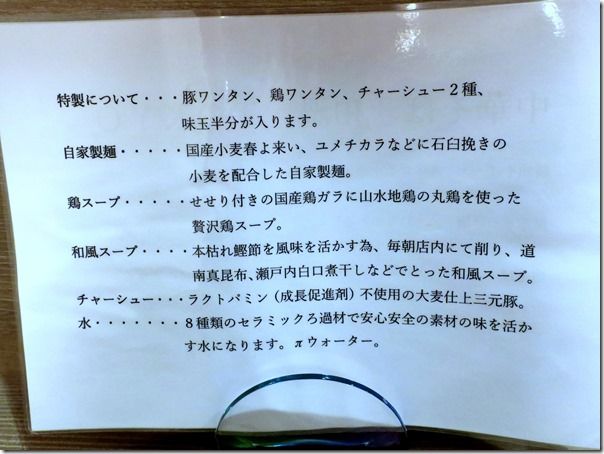 特製について・・・豚ワンタン、鶏ワンタン、チャーシュー２種、
味玉半分が入ります。
自家製麺・・・・・国産小麦春よ来い、ユメチカラなどに石臼挽きの
小麦を配合した自家製麺。
鶏スープ・・・・・せせり付きの国産鶏ガラに山水地鶏の丸鶏を使った
贅沢鶏スープ。
和風スープ・・・・本枯れ鰹節を風味を活かす為、毎朝店内にて削り、道
南真昆布、瀬戸内白口煮干しなどでとった和風スープ。
チャーシュー・・・ラクトパミン（成長促進剤）不使用の大麦仕上三元豚。
水・・・・・・・８種類のセラミックろ過材で安心安全の素材の味を活か
す水になります。πウォーター。